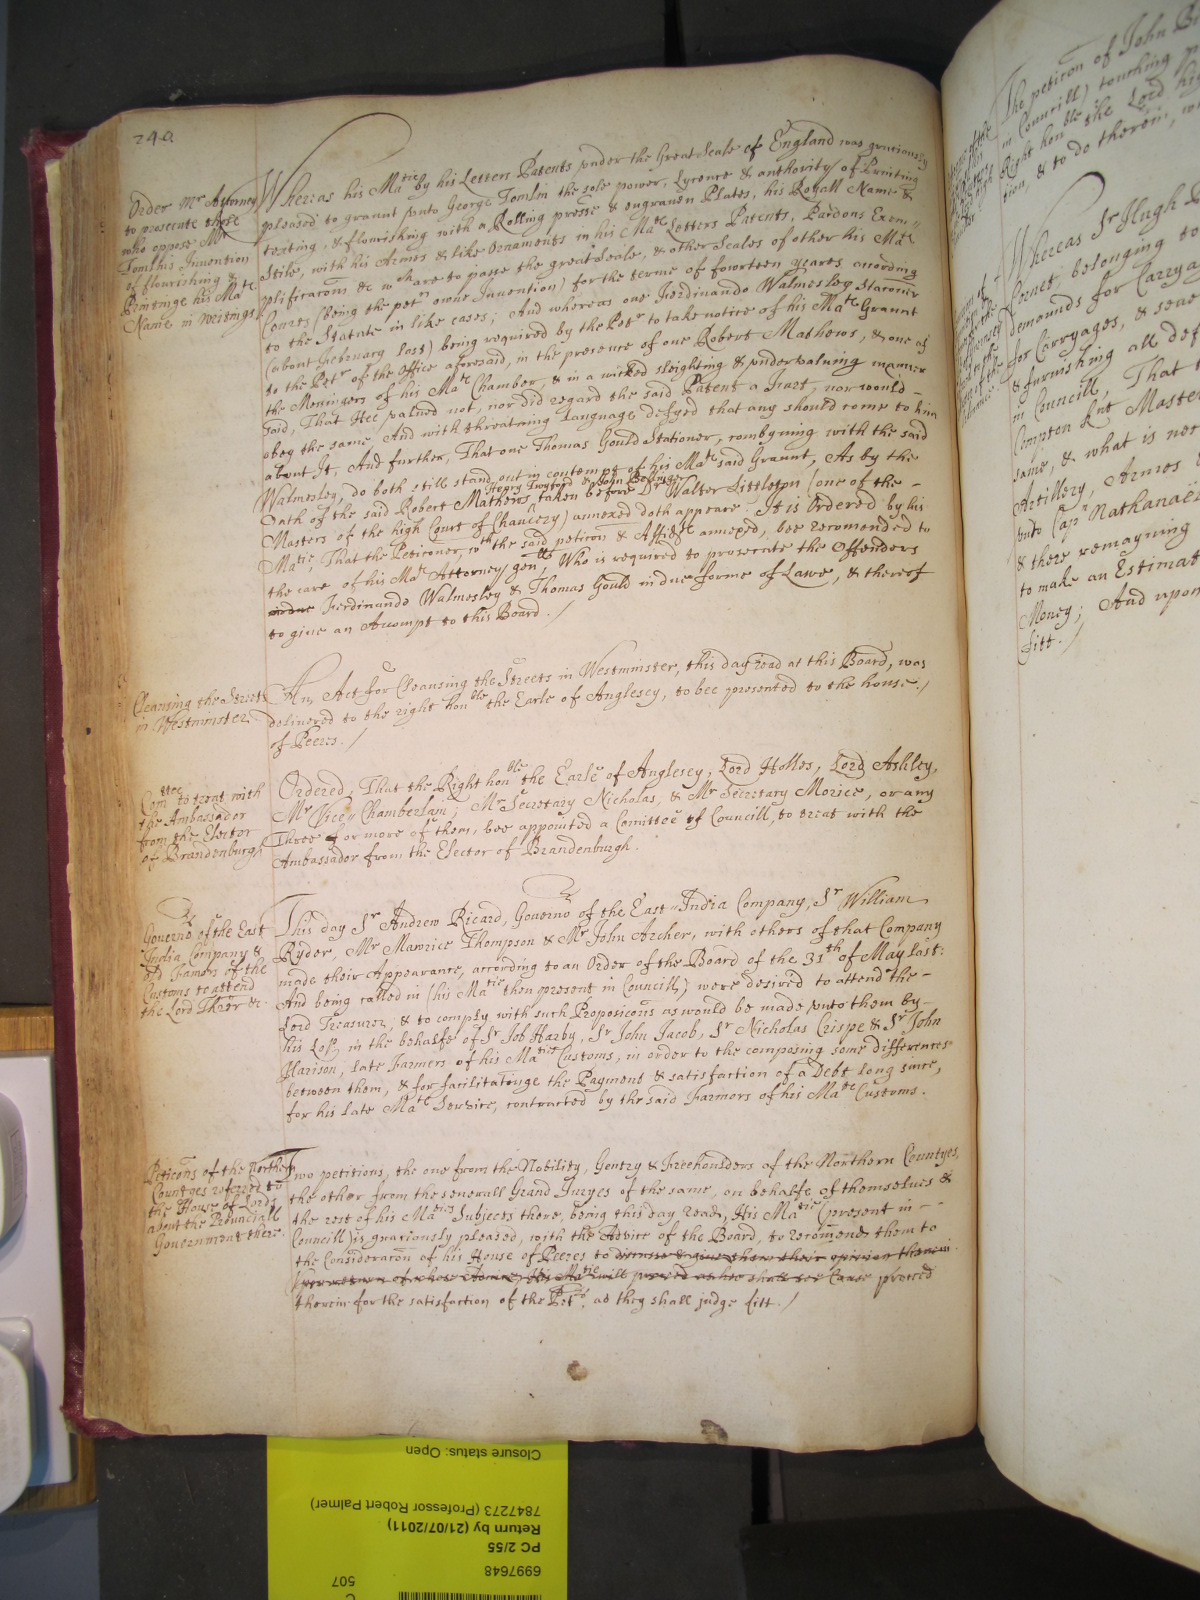 240
Order Mr Attorney
to prosecute those
who oppose Mr
Tomlins Invention
of flourishing &
Printinge his Mats
Name in writings
Whereas his Matie by his Letters Patents vnder the Great Seale of England was graciously
pleased to graunt vnto George Tomlin the sole power, Lycence & authority of Printing
texting, & flourishing with a Rolling presse & engraven Plates, his Royall Name &
Stile, with his Armes & like Ornaments in his Mats Letters Patents, Pardons Exem=
plificacons &c wch are to passe the great Seale, & other Seales of other his Mats
Courts (being the petrs owne Invention) for the terme of fowrteen yeares according
to the Statute in like cases; And whereas one Ferdinando Walmesley Stacioner
(about February last) being required by the Petr to take notice of his Mats Graunt
to the Petr of the Office aforesaid, in the presence of one Robert Mathews, & one of
the Messingers of his Mats Chamber, & in a wicked sleighting & vndervaluing manner
said, That Hee valued not, nor did regard the said Patent a Fart, nor would
obey the same, And with threatning Language defyed that any should come to him
about It, And further, That one Thomas Gould Stationer, combyning with the said
Walmesley, do both still stand out in contempt of his Mats said Graunt, As by the
Oath of the said Robert Mathews Henry Twyford & John Bellinger taken before Dr Walter Littleton (one of the
Masters of the high Court of Chancery) annexed doth appeare. It is Ordered by his
Matie, That the Peticoner, wth the said peticon & Affidt annexed, bee recomended to
the care of his Mats Attorney genll, Who is required to prosecute the Offenders
in due Ferdinando Walmesley & Thomas Gould in due forme of Lawe, & thereof
to give an Accompt to this Board./
Cleansing the Streets
in Westminster
An Act for Cleansing the Streets in Westminster, this day read at this Board, was
delivered to the right honble the Earle of Anglesey, to bee presented to the house
of Peeres./
Comttee to treat with
the Ambassador
from the Elector
of Brandenburgh
Ordered, That the Right honble the Earle of Anglesey, Lord Holles, Lord Ashley,
Mr Vice=Chamberlain, Mr Secretary Nicholas, & Mr Secretary Morice, or any
Three of or more of them, bee appointed a Comittee of Councill, to treat with the
Ambassador from the Elector of Brandenburgh.
Governor of the East
India Company &
old Farmors of the
Customs to attend
the Lord Threr &c
This day Sr Andrew Ricard, Governor of the East=India Company, Sr William
Ryder, Mr Maurice Thompson & Mr John Archer, with others of that Company
made their Appearance, according to an Order of the Board of the 31th of May last:
And being called in (his Matie then present in Councill) were desired to attend the
Lord Treasurer, & to comply with such Proposicons as would be made vnto them by
his Lopp, in the behalfe of Sr Job Harby, Sr John Jacob, Sr Nicholas Crispe & Sr John
Harison, late Farmers of his Maties Customs, in order to the composing some differences
between them, & for facilitatinge the Payment & satisfaction of a Debt long since,
for his late Mats Service, contracted by the said Farmors of his Mats Customs.
Peticons of the Northern
Countyes referred to
the House of Lords
about the Provinciall
Government there.
Two petitions, the one from the Nobility, Gentry & Freehoulders of the Northern Countyes,
the other from the severall Grand Juryes of the same, on behalfe of themselves &
the rest of his Maties Subjects there, being this day read, His Matie (present in
Councill) is graciously pleased, with the Advice of the Board, to recomende them to
the Consideracon of his House of Peeres to discusse & give there their opinion therein
Upon return of whose Advice, His Matie will proceed as hee shall see Cause proceed
therein for the satisfaction of the Petrs, as they shall judge fitt./
The peticon of John
in Councill) touching
Right honble the Lord high
tion, & to do therein,
Whereas Sr Hugh
Cornet, belonging to
demaunds for Carryag
for Carryages, & seve
& furnishing all def
in Councill, That
Compton Knt Master
same, & what is nec
Artillery, Armes
vnto Capn Nathanaël
& there remayning
to make an Estimat
Money; And upon
fitt./
Closure status: Open
7847273 (Professor Robert Palmer)
Return by (21/07/2011)
PC 2/55
6997648
507